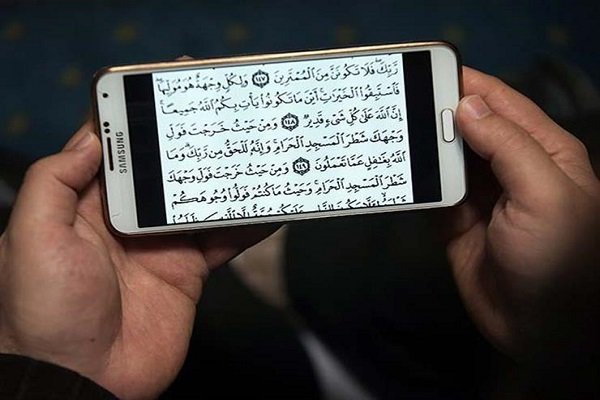 رَبِّكَ فَلَا تَكُونَنَّ مِنَ الْمُمْتَرِينَ ١٤٧ وَلِكُلٍّ وِجْهَةٌ هُوَ مُوَلِّيهَا
فَاسْتَبِقُوا الْخَيْرَاتِ أَيْنَ مَا تَكُونُوا يَأْتِ بِكُمُ اللَّهُ جَمِيعًا
إِنَّ اللَّهَ عَلَىٰ كُلِّ شَيْءٍ قَدِيرٌ ١٤٨ وَمِنْ حَيْثُ خَرَجْتَ فَوَلِّ
وَجْهَكَ شَطْرَ الْمَسْجِدِ الْحَرَامِ وَإِنَّهُ لَلْحَقُّ مِنْ رَبِّكَ وَمَا
اللَّهُ بِغَافِلٍ عَمَّا تَعْمَلُونَ ١٤٩ وَمِنْ حَيْثُ خَرَجْتَ فَوَلِّ وَجْهَكَ
شَطْرَ الْمَسْجِدِ الْحَرَامِ وَحَيْثُ مَا كُنْتُمْ فَوَلُّوا وُجُوهَكُمْ
SAMSUNG